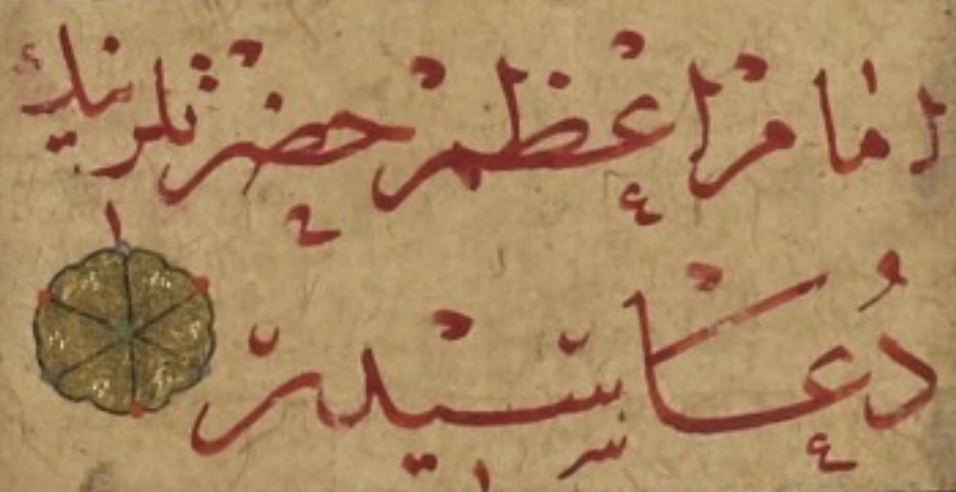 امام اعظم حضرتلرینك
دُعاسیدر